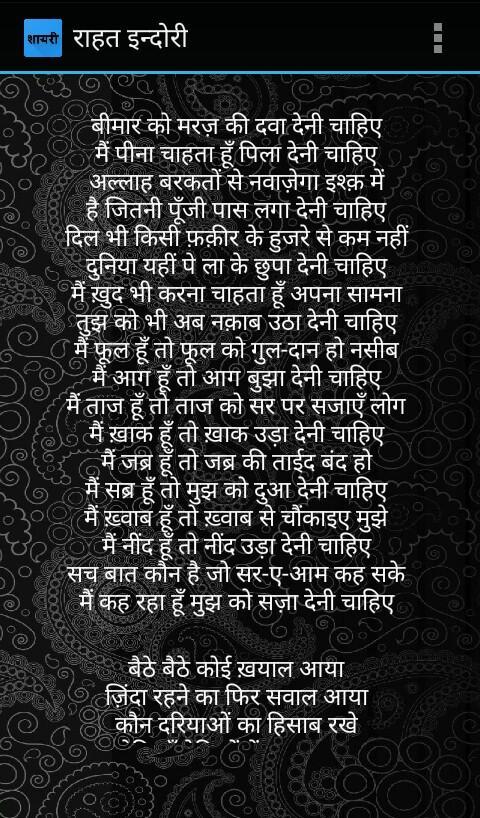 शायरी
राहत इन्दोरी
बीमार को मरज़ की दवा देनी चाहिए
मैं पीना चाहता हूँ पिला देनी चाहिए
अल्लाह बरकतों से नवाज़ेगा इश्क़ में
है जितनी पूँजी पास लगा देनी चाहिए
दिल भी किसी फ़क़ीर के हुजरे से कम नहीं
दुनिया यहीं पे ला के छुपा देनी चाहिए
मैं ख़ुद भी करना चाहता हूँ अपना सामना
तुझ को भी अब नक़ाब उठा देनी चाहिए
मैं फूल हूँ तो फूल को गुल-दान हो नसीब
मैं आग हूँ तो आग बुझा देनी चाहिए
मैं ताज हूँ तो ताज को सर पर सजाएँ लोग
मैं ख़ाक हूँ तो ख़ाक उड़ा देनी चाहिए
मैं जब्र हूँ तो जब्र की ताईद बंद हो
मैं सब्र हूँ तो मुझ को दुआ देनी चाहिए
मैं ख़्वाब हूँ तो ख़्वाब से चौंकाइए मुझे
मैं नींद हूँ तो नींद उड़ा देनी चाहिए
सच बात कौन है जो सर-ए-आम कह सके
मैं कह रहा हूँ मुझ को सज़ा देनी चाहिए
बैठे बैठे कोई ख़याल आया
ज़िंदा रहने का फिर सवाल आया
कौन दरियाओं का हिसाब रखे